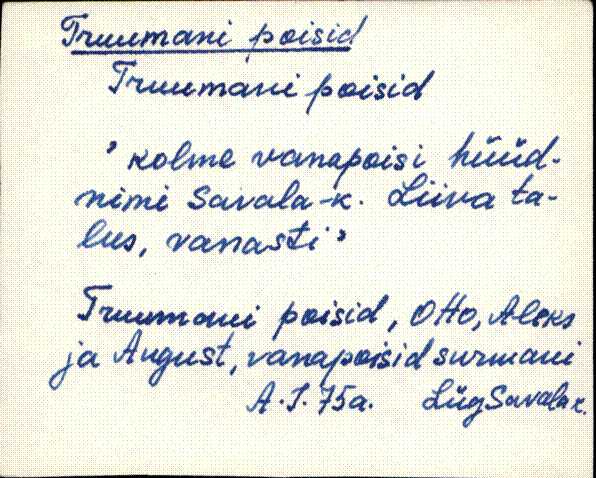 Truumani poisid
Truumani poisid
’ kolme vanapoisi hüüd-
nimi Savala-k. Liiva ta-
lus, vanasti ’
Truumani poisid, Otto, Aleks
ja August, vanapoisid surmani
A.I. 75a. Lüg Savala k.